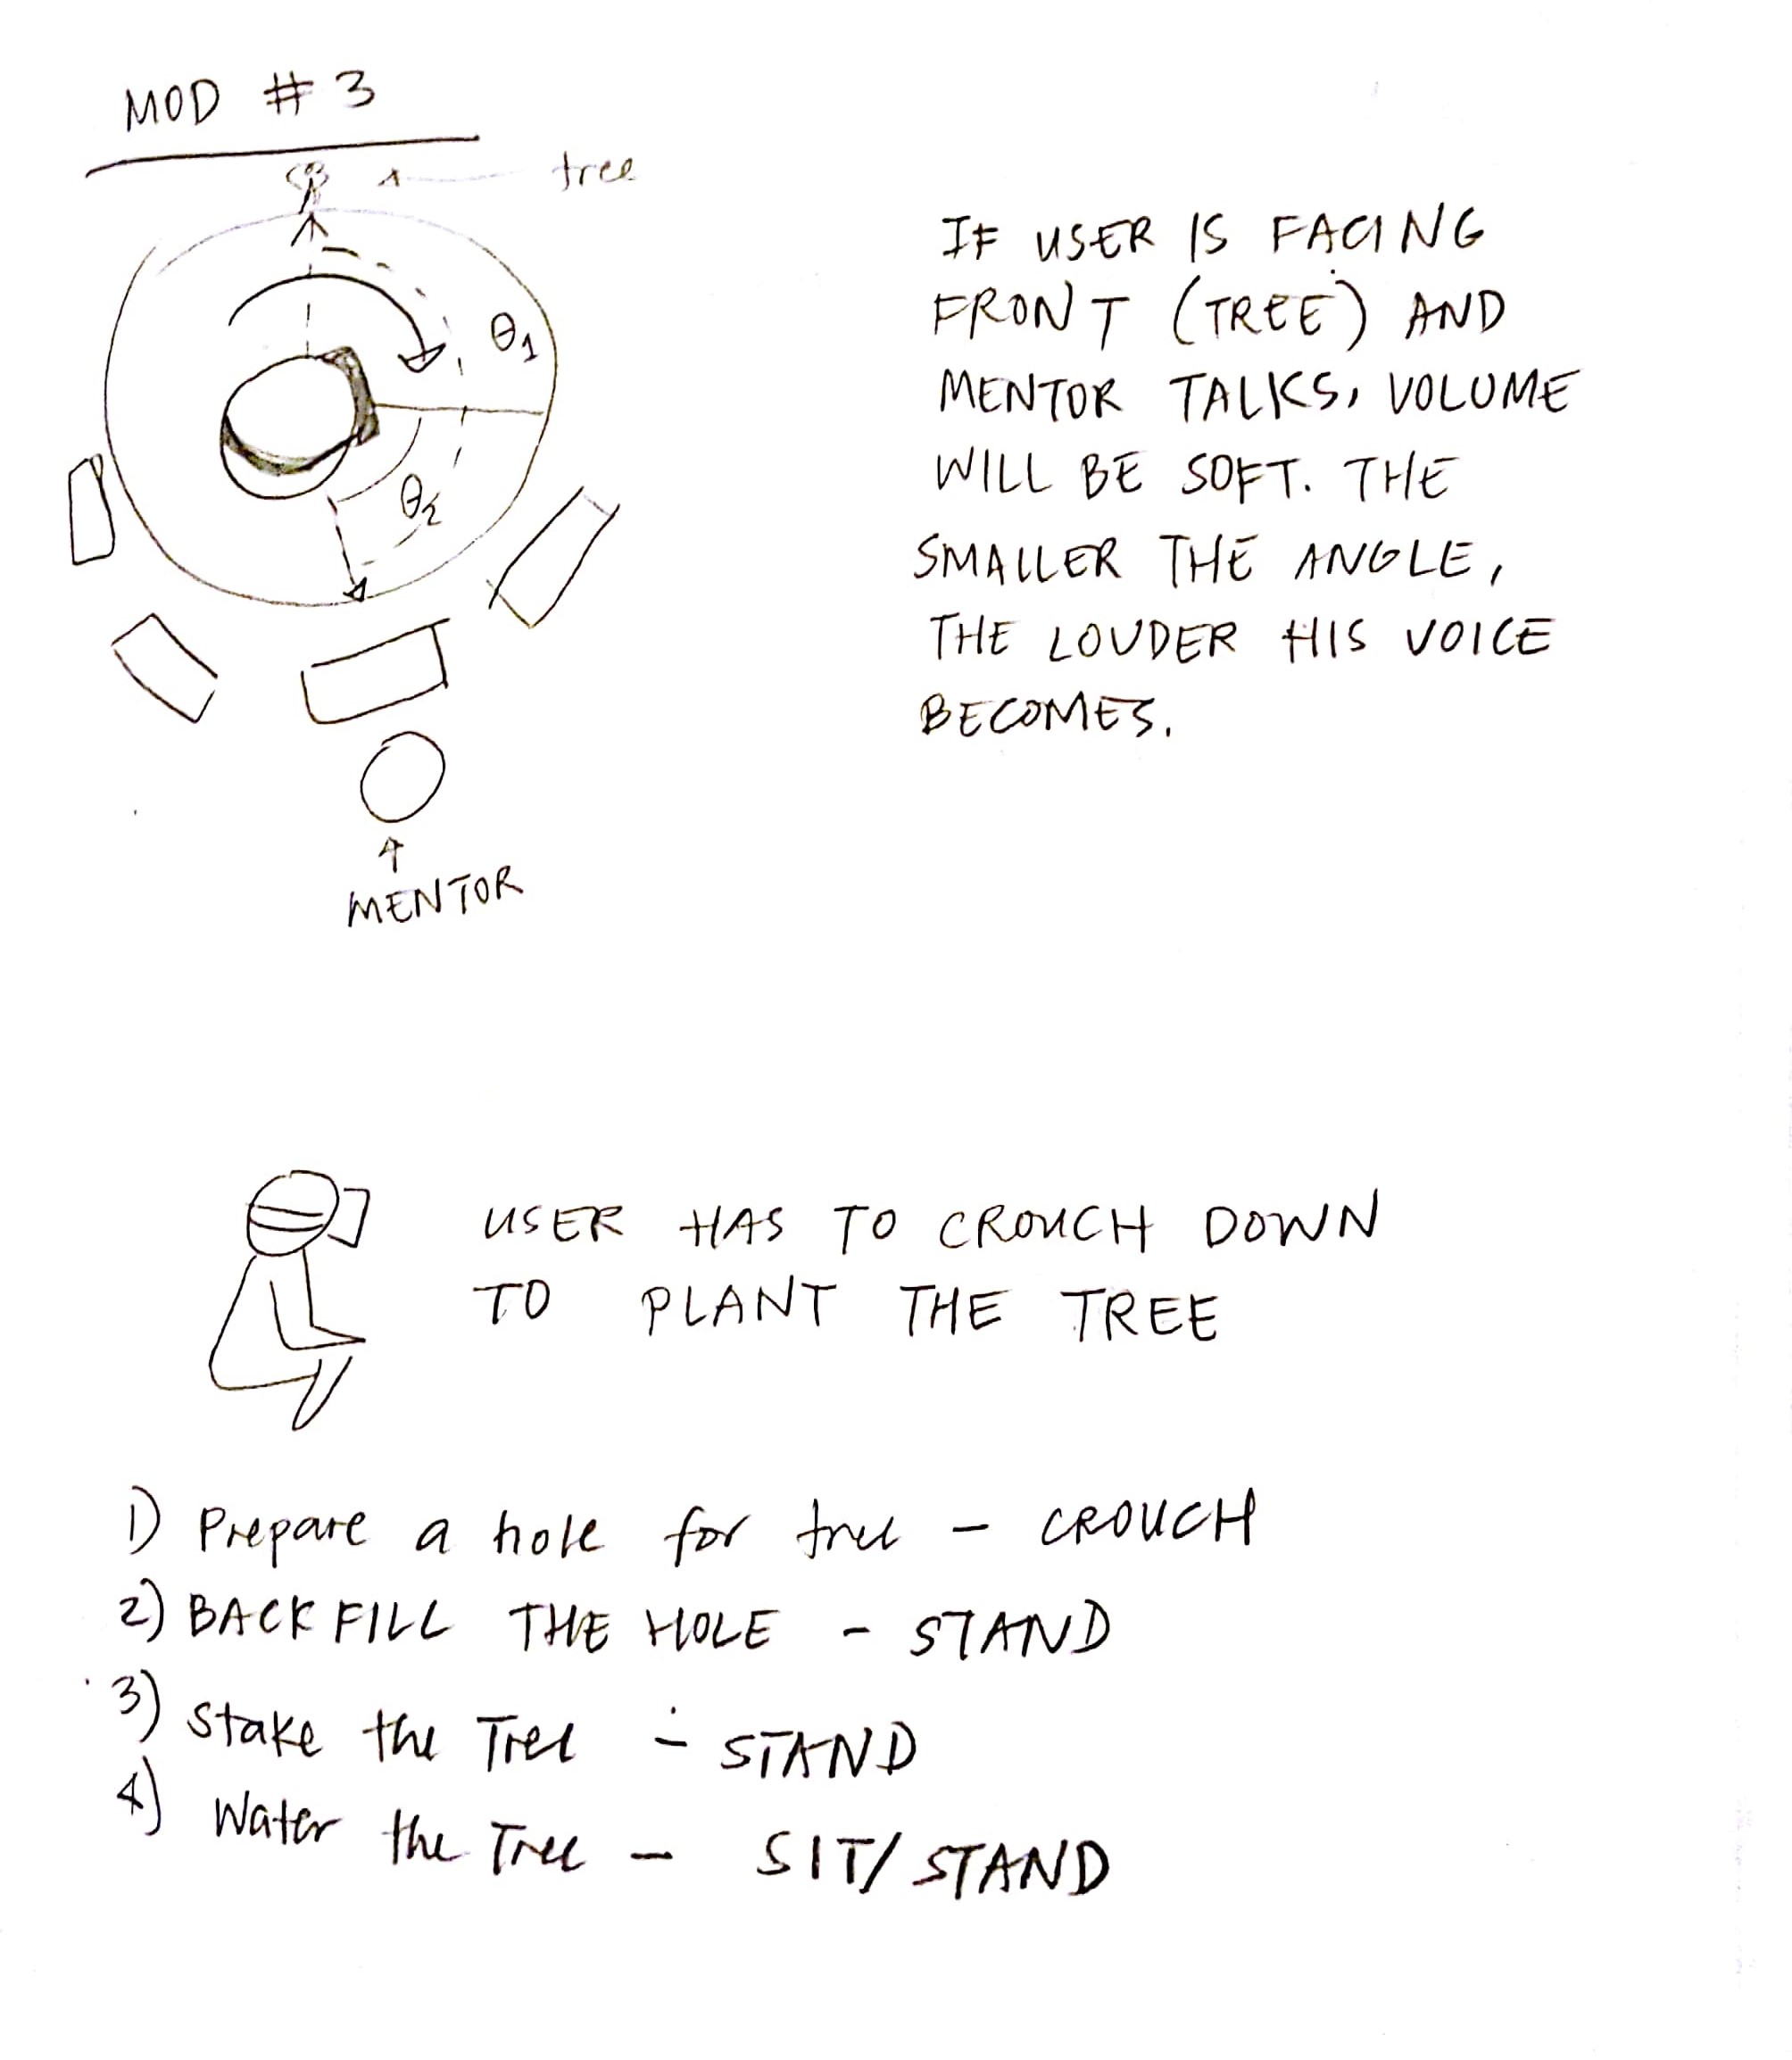 MOD # 3
tree
IF USER IS FACING
FRONT (TREE) AND
MENTOR TALKS, VOLUME
WILL BE SOFT. THE
SMALLER THE ANGLE,
THE LOUDER HIS VOICE
BECOMES.
θ1
θ2
MENTOR
USER HAS TO CROUCH DOWN
TO PLANT THE TREE
1) Prepare a hole for tree - CROUCH
2) BACKFILL THE HOLE - STAND
3) Stake the Tree - STAND
4) Water the Tree - SIT/STAND